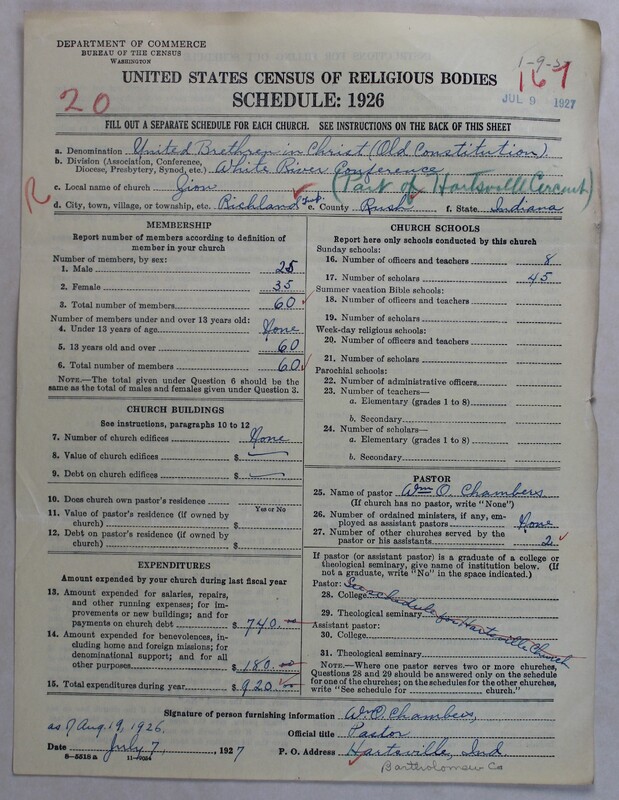 DEPARTMENT OF COMMERCE
BUREAU OF THE CENSUS
WASHINGTON
1-9-3
167
20
JUL 9 1927
UNITED STATES CENSUS OF RELIGIOUS BODIES
SCHEDULE: 1926
FILL OUT A SEPARATE SCHEDULE FOR EACH CHURCH. SEE INSTRUCTIONS ON THE BACK OF THIS SHEET
a. Denomination United Brethren in Christ (Old Constitution)
b. Division (Association, Conference, Diocese, Presbytery, Synod, etc.) White River Conference
R
c. Local name of church Zion (Part of Hartsville Cercuit)
d. City, town, village, or township, etc. Richland Twp. e. County Rush f. State Indiana
MEMBERSHIP
Report number of members according to definition of
member in your church
Number of members, by sex:
1. Male 25
2. Female 35
3. Total number of members 60
Number of members under and over 13 years old:
4. Under 13 years of age None
5. 13 years old and over 60
6. Total number of members 60
NOTE.—The total given under Question 6 should be
the same as the total of males and females given under Question 3.
CHURCH BUILDINGS
See instructions, paragraphs 10 to 12
7. Number of church edifices None
8. Value of church edifices $ —
9. Debt on church edifices $ —
10. Does church own pastor's residence
Yes or No
11. Value of pastor's residence (if owned by
church) $
12. Debt on pastor's residence (if owned by
church) $
EXPENDITURES
Amount expended by your church during last fiscal year
13. Amount expended for salaries, repairs,
and other running expenses; for im-
provements or new buildings; and for
payments on church debt $ 740.
14. Amount expended for benevolences, in-
cluding home and foreign missions; for
denominational support; and for all
other purposes $ 180.
15. Total expenditures during year $ 920.
CHURCH SCHOOLS
Report here only schools conducted by this church
Sunday schools:
16. Number of officers and teachers 8
17. Number of scholars 45
Summer vacation Bible schools:
18. Number of officers and teachers
19. Number of scholars
Week-day religious schools:
20. Number of officers and teachers
21. Number of scholars
Parochial schools:
22. Number of administrative officers
23. Number of teachers—
a. Elementary (grades 1 to 8)
b. Secondary
24. Number of scholars—
a. Elementary (grades 1 to 8)
b. Secondary
PASTOR
25. Name of pastor Wm O. Chambers
(If church has no pastor, write "None")
26. Number of ordained ministers, if any, em-
ployed as assistant pastors None
27. Number of other churches served by the
pastor or his assistants 2
If pastor (or assistant pastor) is a graduate of a college or
theological seminary, give name of institution below. (If
not a graduate, write "No" in the space indicated.)
Pastor: See schedule for Hartsville Church
28. College
29. Theological seminary
Assistant pastor:
30. College
31. Theological seminary
NOTE.—Where one pastor serves two or more churches,
Questions 28 and 29 should be answered only on the schedule
for one of the churches; on the schedules for the other churches,
write "See schedule for church."
Signature of person furnishing information Wm O. Chambers,
as of Aug. 19, 1926.
Official title Pastor
Date July 7, 1927
P. O. Address Hartsville, Ind
8—5518 a
Bartholomew Co